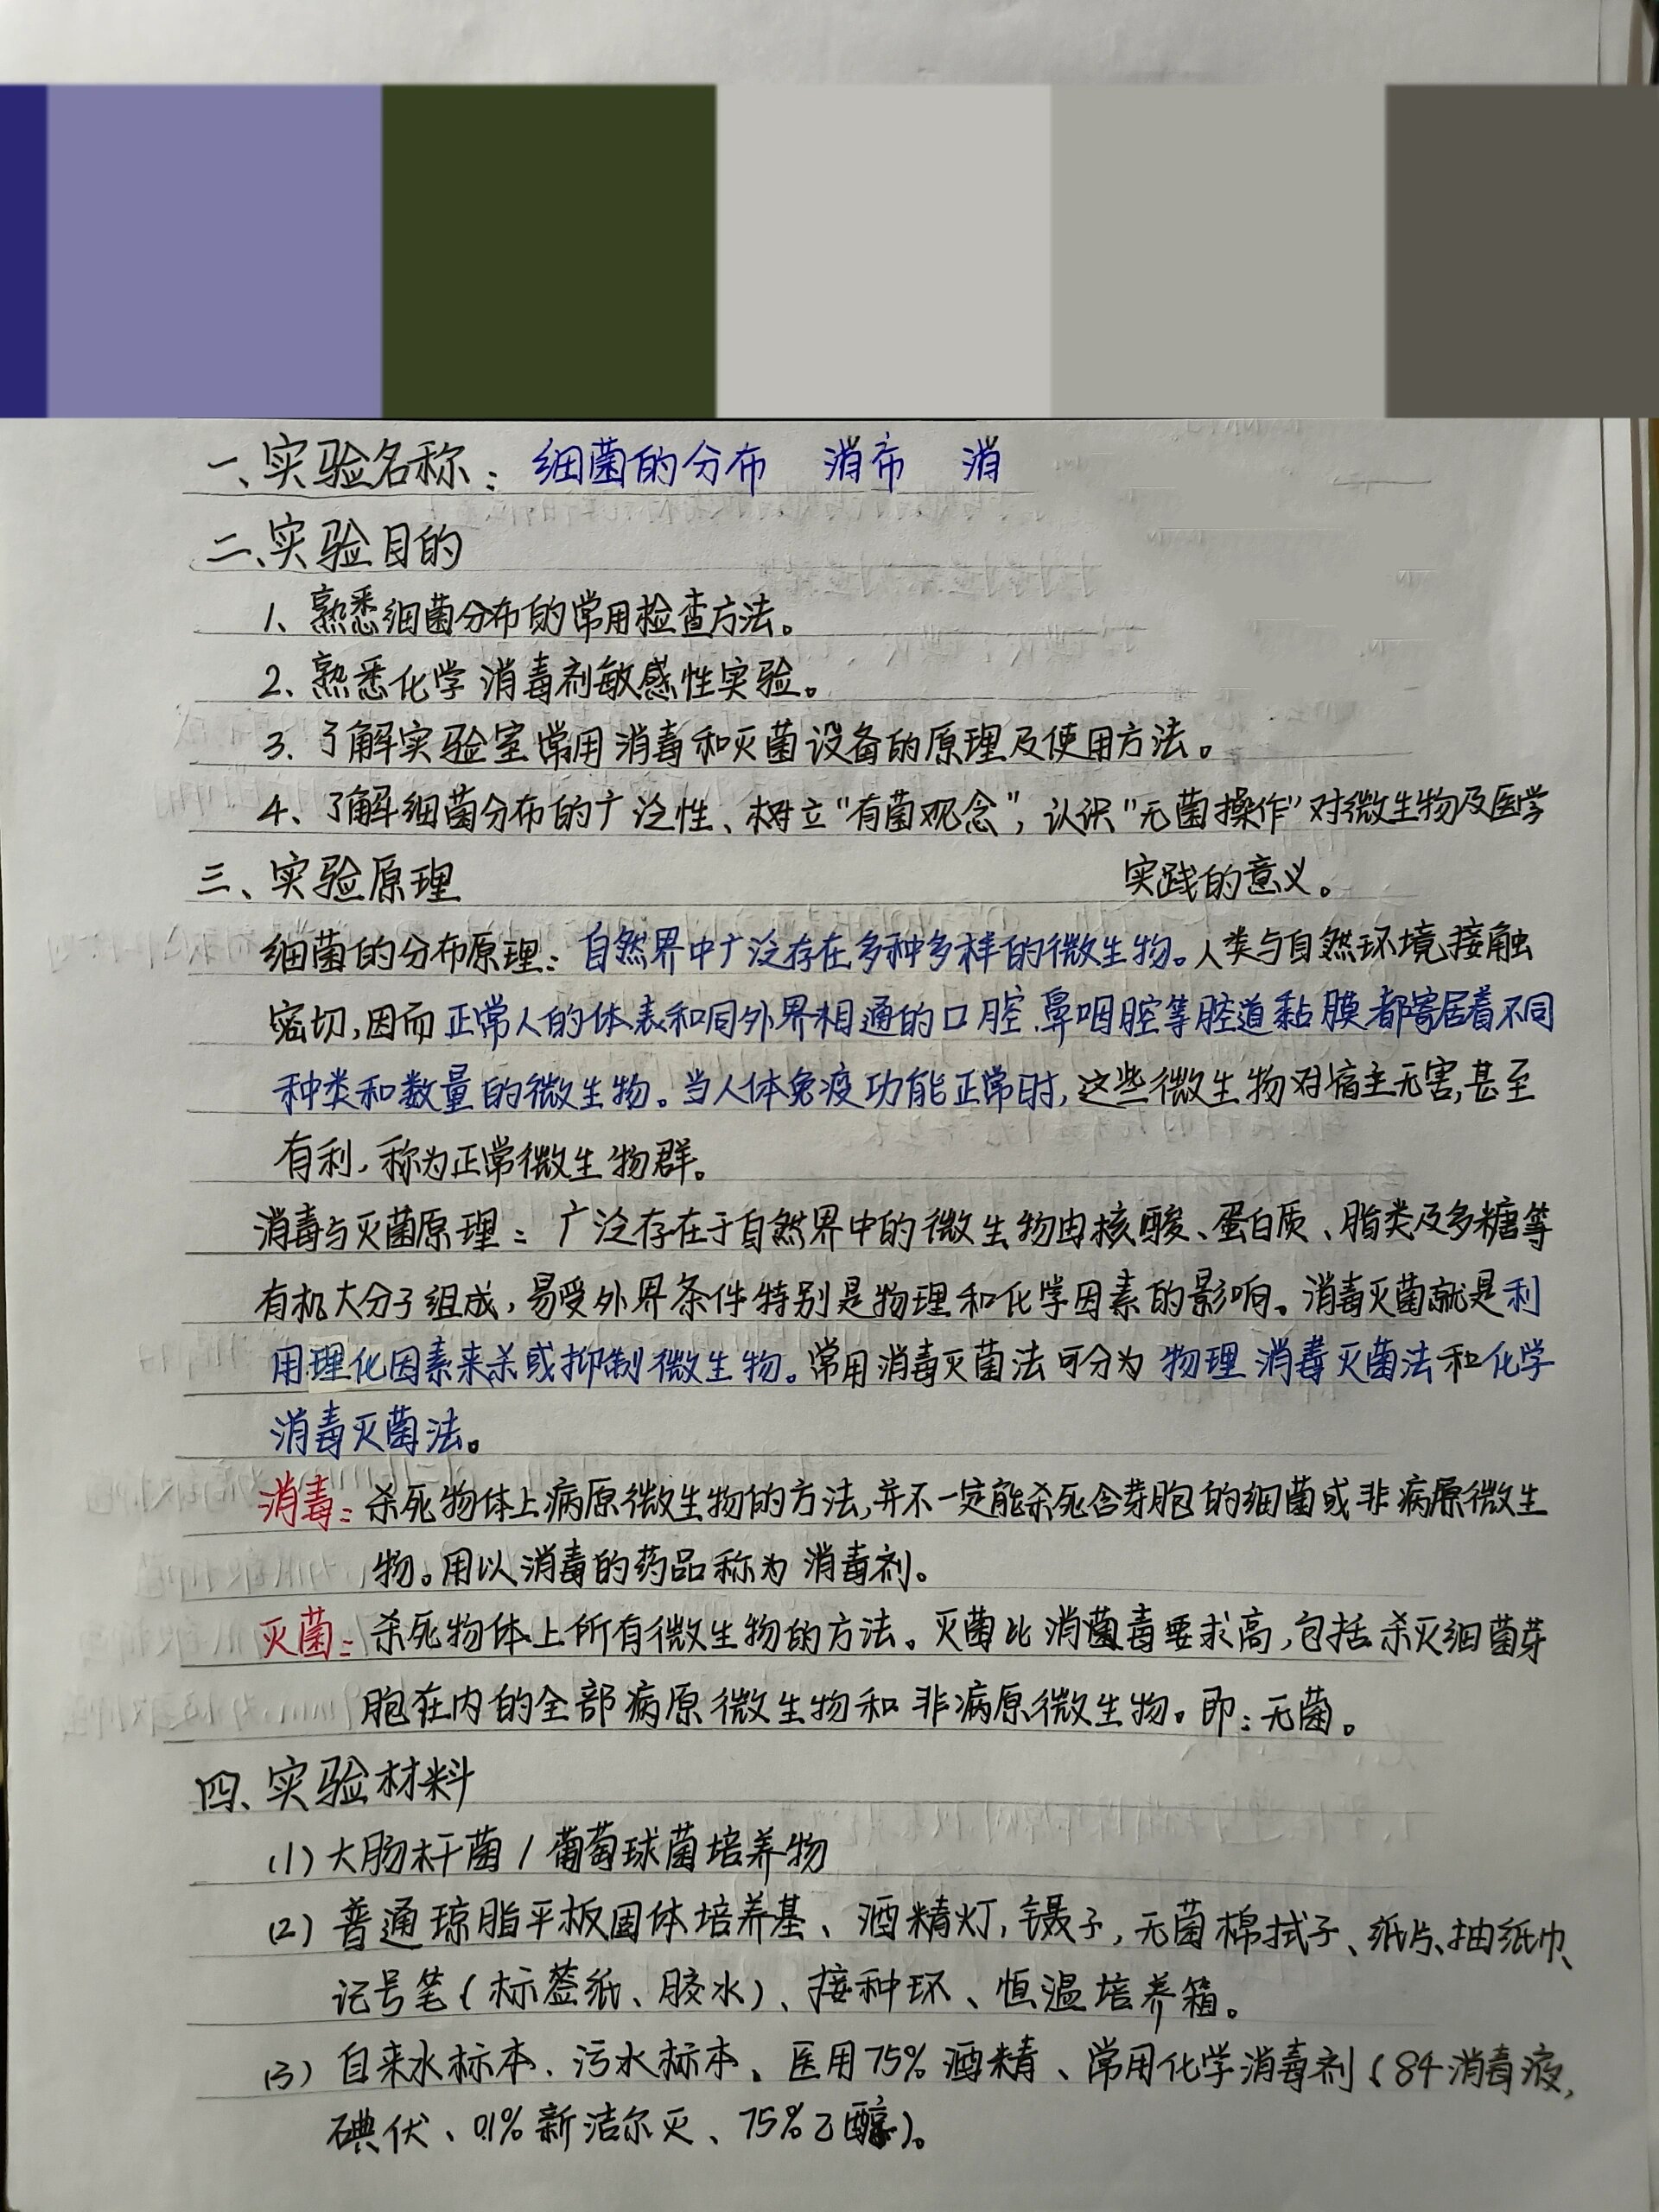 一、实验名称：细菌的分布 消布 消
二、实验目的
1、熟悉细菌分布的常用检查方法。
2、熟悉化学消毒剂敏感性实验。
3、了解实验室常用消毒和灭菌设备的原理及使用方法。
4、了解细菌分布的广泛性、树立"有菌观念"，认识"无菌操作"对微生物及医学
实践的意义。
三、实验原理
细菌的分布原理：自然界中广泛存在多种多样的微生物。人类与自然环境接触
密切，因而正常人的体表和同外界相通的口腔、鼻咽腔等腔道黏膜都寄居着不同
种类和数量的微生物。当人体免疫功能正常时，这些微生物对宿主无害，甚至
有利，称为正常微生物群。
消毒与灭菌原理：广泛存在于自然界中的微生物由核酸、蛋白质、脂类及多糖等
有机大分子组成，易受外界条件特别是物理和化学因素的影响。消毒灭菌就是利
用理化因素来杀或抑制微生物。常用消毒灭菌法可分为物理消毒灭菌法和化学
消毒灭菌法。
消毒：杀死物体上病原微生物的方法，并不一定能杀死含芽胞的细菌或非病原微生
物。用以消毒的药品称为消毒剂。
灭菌：杀死物体上所有微生物的方法。灭菌比消毒要求高，包括杀灭细菌芽
胞在内的全部病原微生物和非病原微生物。即：无菌。
四、实验材料
(1) 大肠杆菌/葡萄球菌培养物
(2) 普通琼脂平板固体培养基、酒精灯，镊子，无菌棉拭子、纸片、抽纸巾、
记号笔(标签纸、胶水)、接种环、恒温培养箱。
(3) 自来水标本、污水标本、医用75%酒精、常用化学消毒剂(84消毒液，
碘伏、0.1%新洁尔灭、75%乙醇)。